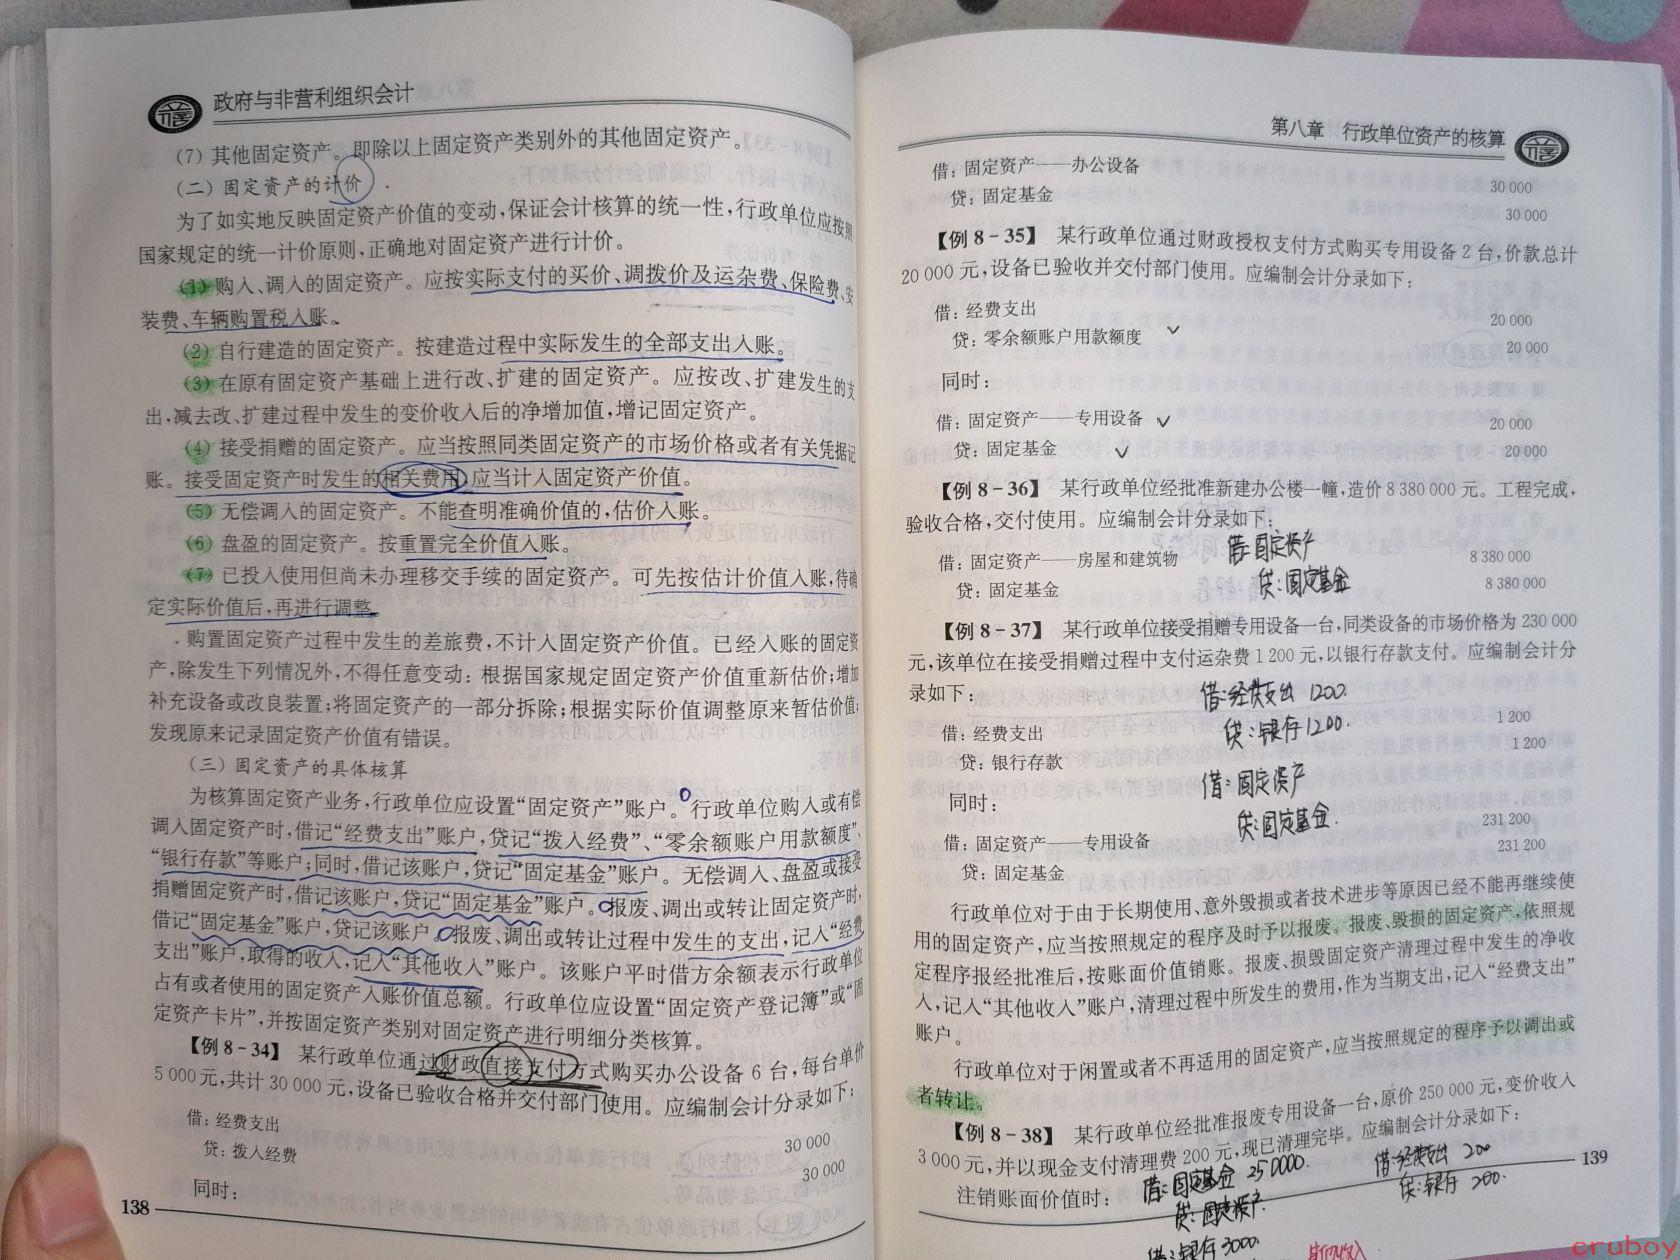 政府与非营利组织会计
(7) 其他固定资产。即除以上固定资产类别外的其他固定资产。
(二) 固定资产的计价
为了如实地反映固定资产价值的变动,保证会计核算的统一性,行政单位应按照
国家规定的统一计价原则,正确地对固定资产进行计价。
(1) 购入、调入的固定资产。应按实际支付的买价、调拨价及运杂费、保险费、安
装费、车辆购置税入账。
(2) 自行建造的固定资产。按建造过程中实际发生的全部支出入账。
(3) 在原有固定资产基础上进行改、扩建的固定资产。应按改、扩建发生的支
出,减去改、扩建过程中发生的变价收入后的净增加值,增记固定资产。
(4) 接受捐赠的固定资产。应当按照同类固定资产的市场价格或者有关凭据记
账。接受固定资产时发生的相关费用,应当计入固定资产价值。
(5) 无偿调入的固定资产。不能查明准确价值的,估价入账。
(6) 盘盈的固定资产。按重置完全价值入账。
(7) 已投入使用但尚未办理移交手续的固定资产。可先按估计价值入账,待确
定实际价值后,再进行调整。
购置固定资产过程中发生的差旅费,不计入固定资产价值。已经入账的固定资
产,除发生下列情况外,不得任意变动:根据国家规定固定资产价值重新估价;增加
补充设备或改良装置;将固定资产的一部分拆除;根据实际价值调整原来暂估价值;
发现原来记录固定资产价值有错误。
(三) 固定资产的具体核算
为核算固定资产业务,行政单位应设置“固定资产”账户。行政单位购入或有偿
调入固定资产时,借记“经费支出”账户,贷记“拨入经费”、“零余额账户用款额度”、
“银行存款”等账户;同时,借记该账户,贷记“固定基金”账户。无偿调入、盘盈或接受
捐赠固定资产时,借记该账户,贷记“固定基金”账户。报废、调出或转让固定资产时,
借记“固定基金”账户,贷记该账户。报废、调出或转让过程中发生的支出,记入“经费
支出”账户,取得的收入,记入“其他收入”账户。该账户平时借方余额表示行政单位
占有或者使用的固定资产入账价值总额。行政单位应设置“固定资产登记簿”或“固
定资产卡片”,并按固定资产类别对固定资产进行明细分类核算。
【例 8-34】 某行政单位通过财政直接支付方式购买办公设备 6 台,每台单价
5 000元,共计 30 000 元,设备已验收合格并交付部门使用。应编制会计分录如下:
借:经费支出 30 000
贷:拨入经费 30 000
同时:
138
第八章 行政单位资产的核算
借:固定资产——办公设备 30 000
贷:固定基金 30 000
【例 8-35】 某行政单位通过财政授权支付方式购买专用设备 2 台,价款总计
20 000 元,设备已验收并交付部门使用。应编制会计分录如下:
借:经费支出 20 000
贷:零余额账户用款额度 20 000
同时:
借:固定资产——专用设备 20 000
贷:固定基金 20 000
【例 8-36】 某行政单位经批准新建办公楼一幢,造价 8 380 000 元。工程完成,
验收合格,交付使用。应编制会计分录如下:
借:固定资产
借:固定资产——房屋和建筑物 8 380 000
贷:固定基金
贷:固定基金 8 380 000
【例 8-37】 某行政单位接受捐赠专用设备一台,同类设备的市场价格为 230 000
元,该单位在接受捐赠过程中支付运杂费 1 200 元,以银行存款支付。应编制会计分
录如下:
借:经费支出 1200.
借:经费支出 1 200
贷:银存1200.
贷:银行存款 1 200
借:固定资产
同时:
贷:固定基金.
借:固定资产——专用设备 231 200
贷:固定基金 231 200
行政单位对于由于长期使用、意外毁损或者技术进步等原因已经不能再继续使
用的固定资产,应当按照规定的程序及时予以报废。报废、毁损的固定资产,依照规
定程序报经批准后,按账面价值销账。报废、损毁固定资产清理过程中发生的净收
入,记入“其他收入”账户,清理过程中所发生的费用,作为当期支出,记入“经费支出”
账户。
行政单位对于闲置或者不再适用的固定资产,应当按照规定的程序予以调出或
者转让。
【例 8-38】 某行政单位经批准报废专用设备一台,原价 250 000 元,变价收入
3 000 元,并以现金支付清理费 200 元,现已清理完毕。应编制会计分录如下:
注销账面价值时:
借:固定基金 250000.
贷:固定资产.
借:银存3000.
借:经费支出 200
贷:银存 200.
139
cruboy